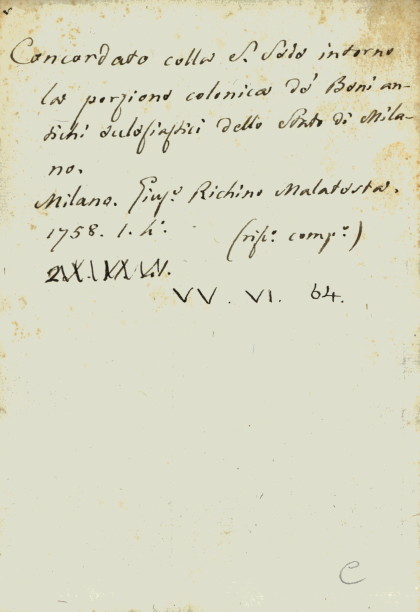 Concordato colla S. Sede intorno
la porzione colonica de' Beni an-
tichi eclesiastici dello Stato di Mila-
no.
Milano. Gius.e Richino Malatesta.
1758. 1. h.
(rist.o comp.o)
VV. VI. 64.
C